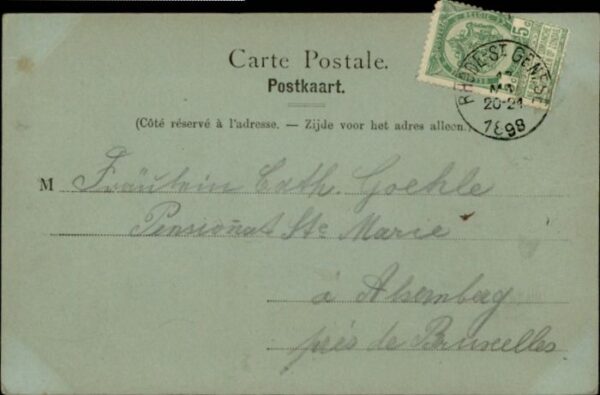 Carte Postale.
Postkaart.
(Côté réservé à l'adresse. — Zijde voor het adres alleen.)
RHODE-ST GENÈSE
20-21
1898
5
M Fräulein Cath. Goehle
Pensionat Ste Marie
à Alsemberg
près de Bruxelles